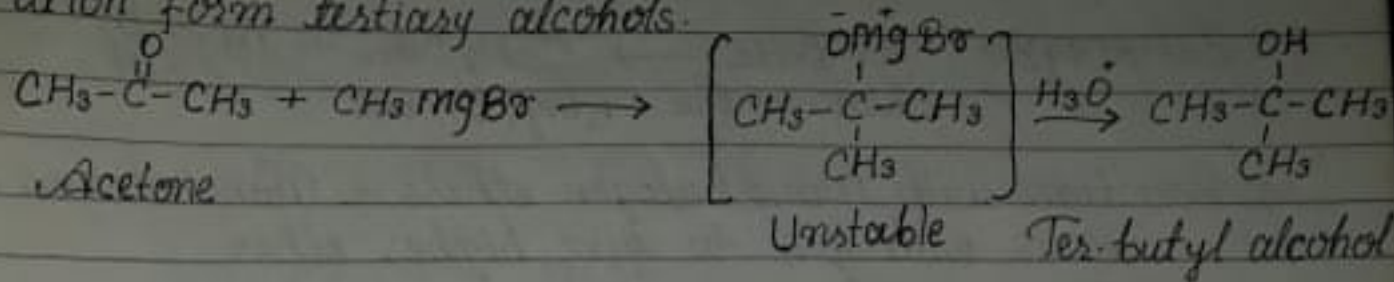 form tertiary alcohols.
O ŌMgBr OH
CH3-C-CH3 + CH3MgBr ⟶ [CH3-C-CH3] H3O⁺ ⟶ CH3-C-CH3
CH3 CH3
Acetone
Unstable Ter.butyl alcohol